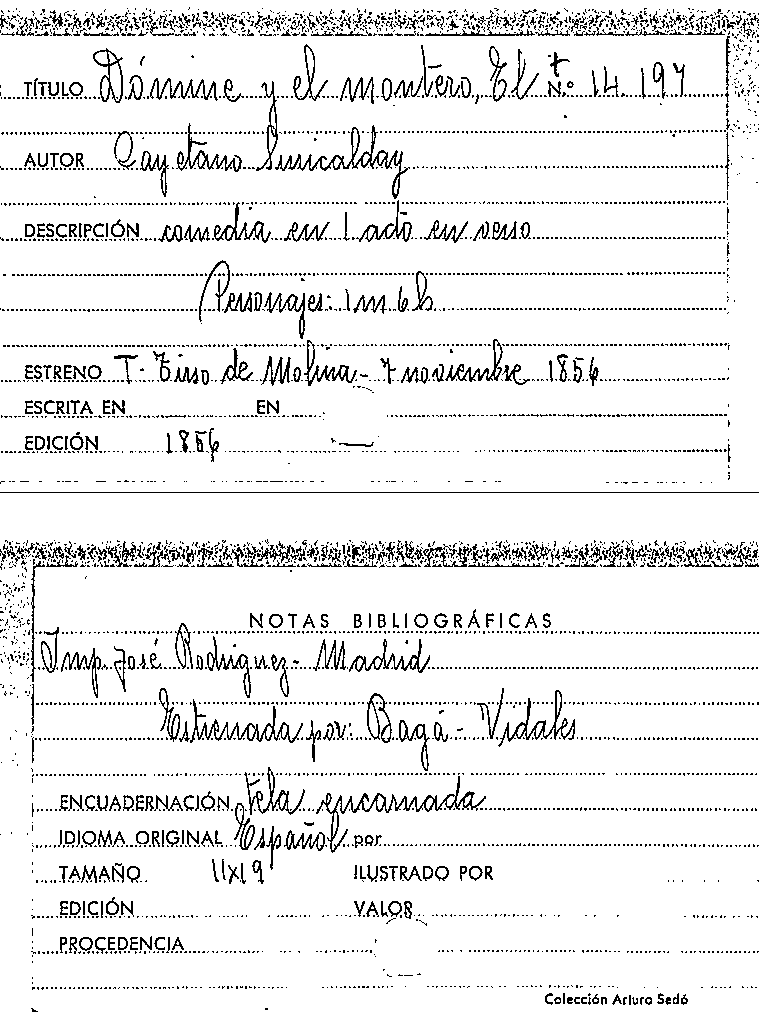 TÍTULO Dómine y el montero, El t N.º 14.197
AUTOR Cayetano Suricalday
DESCRIPCIÓN comedia en 1 acto en verso
Personajes: 1 m 6 h
ESTRENO T. Tirso de Molina - 7 noviembre 1856
ESCRITA EN EN
EDICIÓN 1856
NOTAS BIBLIOGRÁFICAS
Imp. José Rodriguez - Madrid
Estrenada por: Bagá - Vidales
ENCUADERNACIÓN tela encarnada
IDIOMA ORIGINAL Español por
TAMAÑO 11x19 ILUSTRADO POR
EDICIÓN VALOR
PROCEDENCIA
Colección Arturo Sedó